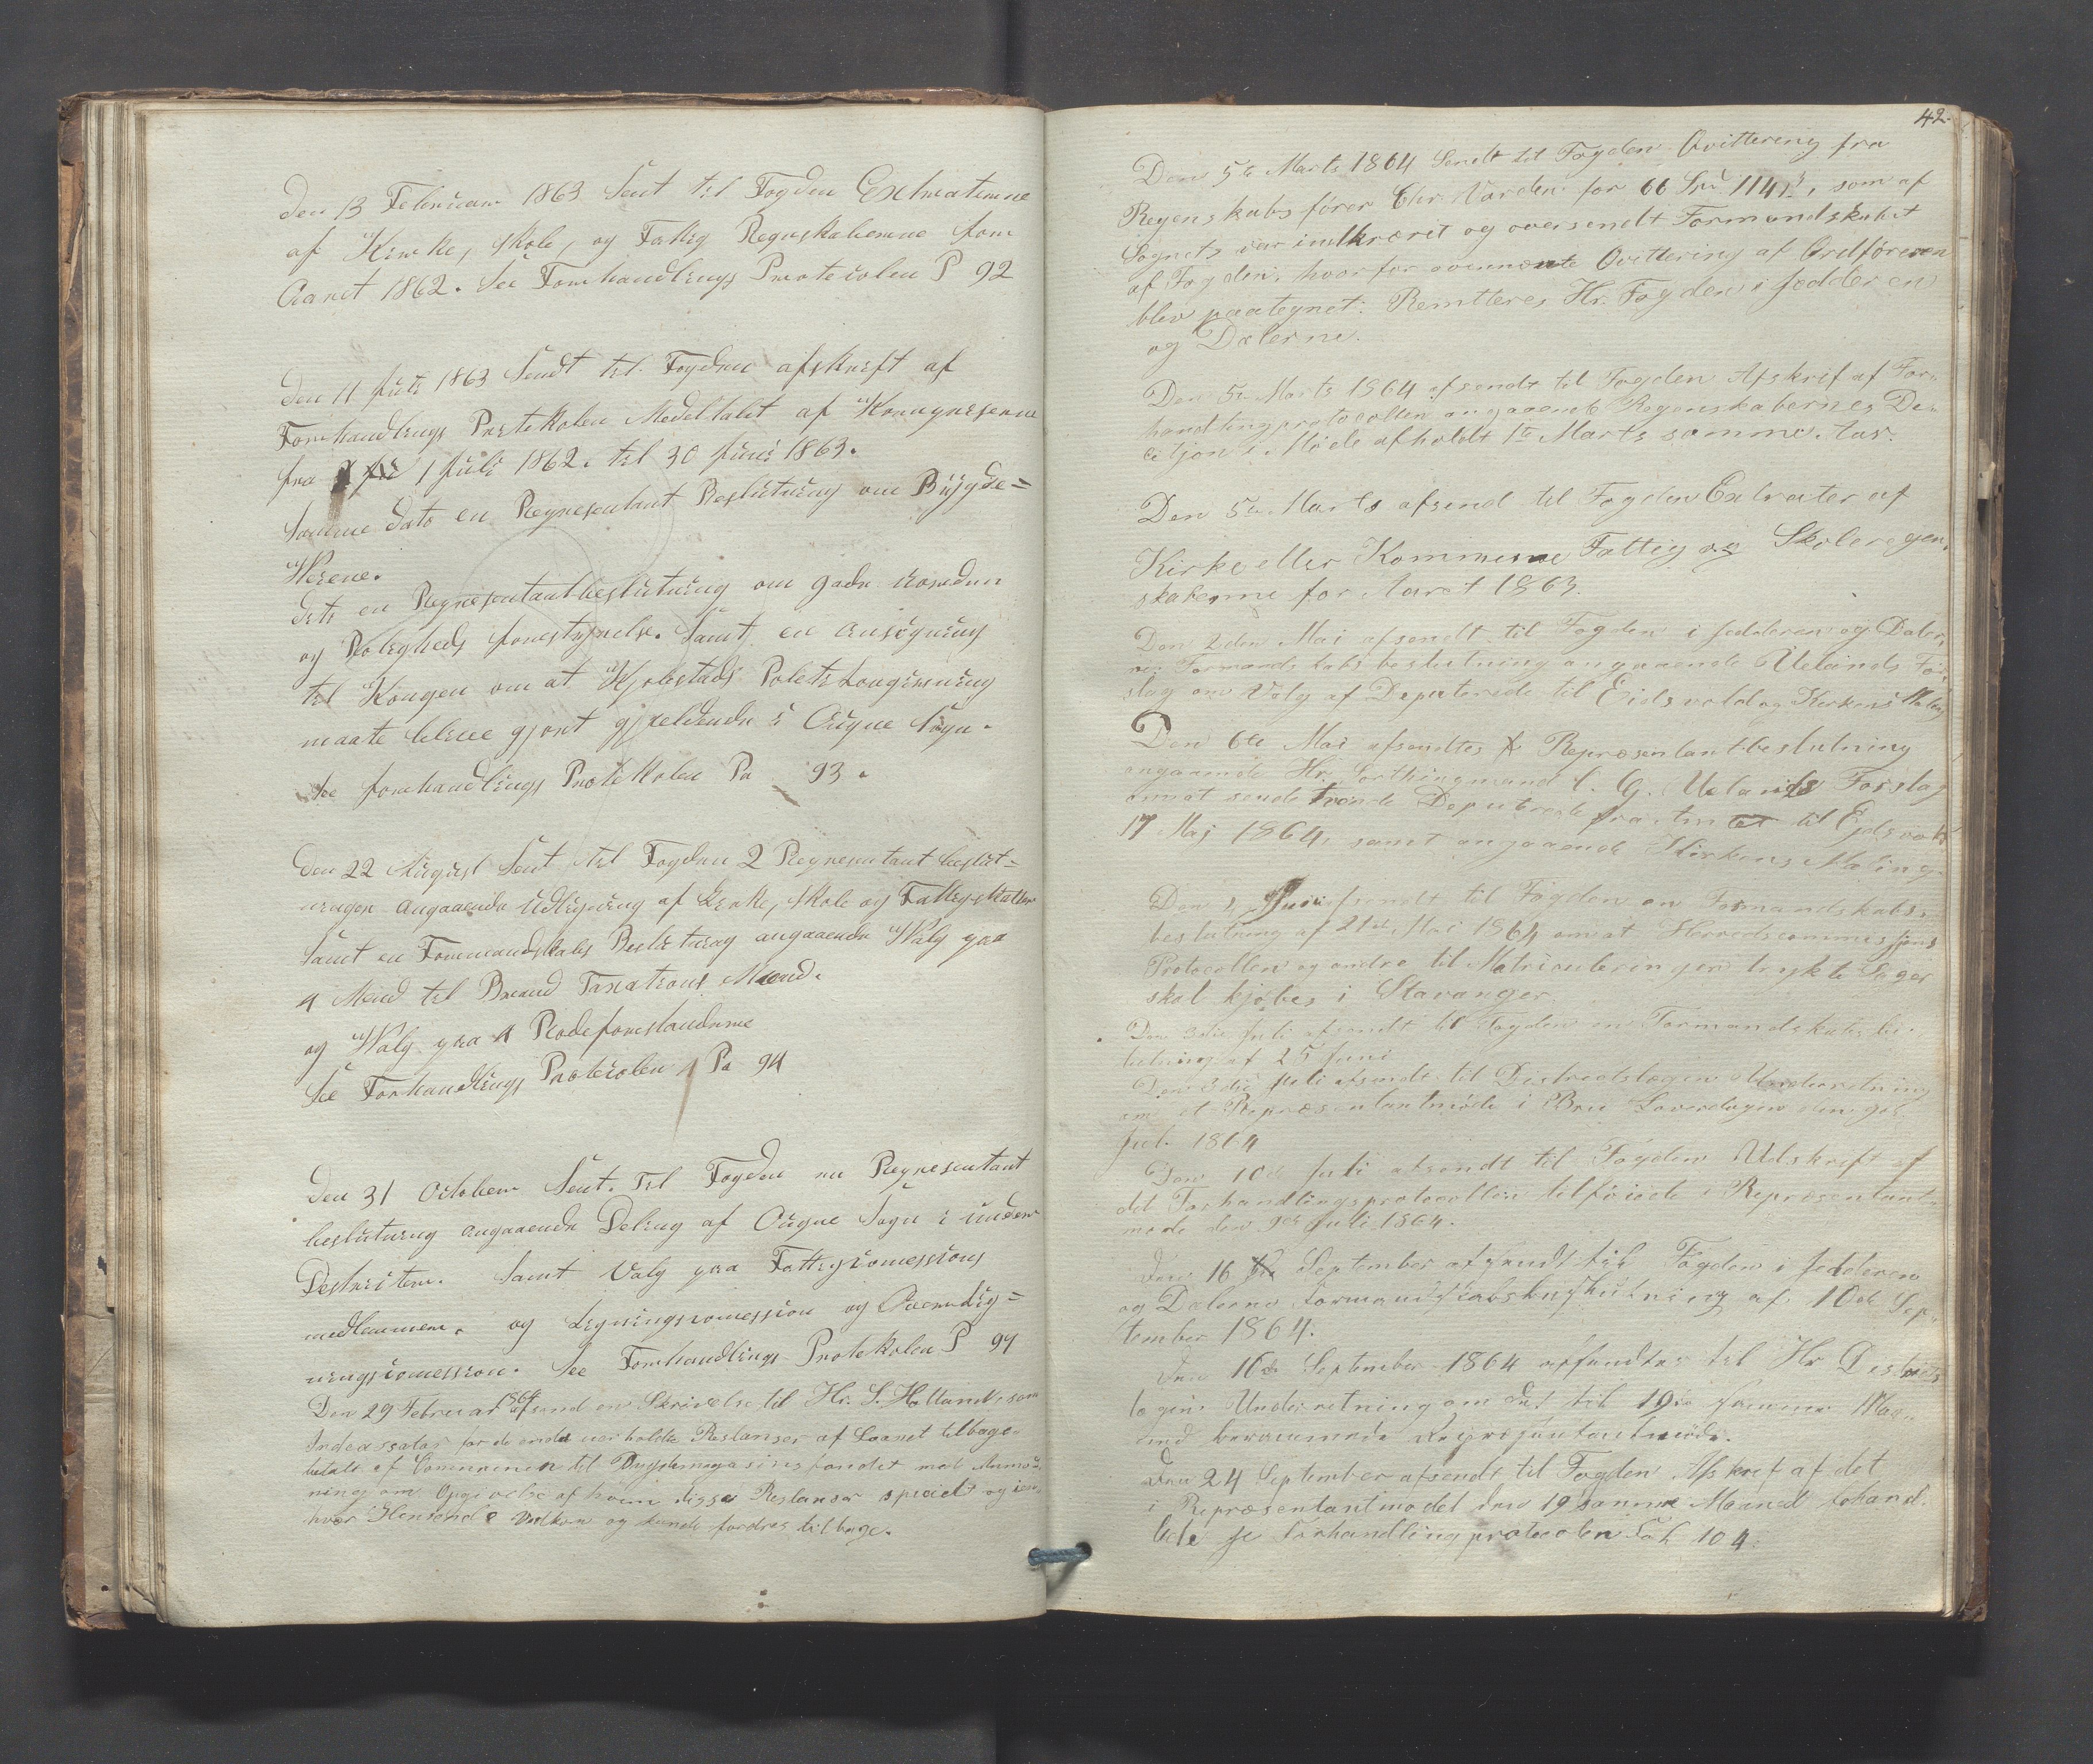 Den 13 Februar 1863 Sent til Fogden Extraterne
af Kirke, Skole, og Fattig Regnskaberne for
Aaret 1862. See Forhandlings Protocolen P 92
Den 11 Juli 1863 Sendt til Fogden afskrift af
Forhandlings Protokolen Medeltalet af
fra 1 Juli 1862. til 30 Juni 1863.
Samme dato en Representant Beslutning om Bygde=
Vesene.
dito en Representantbeslutning om gade
og Roligheds forestyrrelse. Samt en ansögning
til Kongen om at Politi
maate blive gjort gjeldende i Ougne Sogn.
See forhandlings Protokolen Pa 93.
Den 22 August Sent til Fogden 2 Representant beslut=
ninger angaaende Udligning af Kirke, Skole og Fattigskatten
Samt en Formandskabs Beslutning angaaende Walg paa
4 Mend til Brand Taxations Mend.
og Walg paa 4 Rodeforstanderne
See Forhandlings Protocolen Pa 94
Den 31 October Sent. Til Fogden en Representant
beslutning angaaende Deling af Ougne Sogn i under
Destricter. Samt Valg paa Fattigcomessions
medlemmer. og Ligningscomession og Overlig=
ningscomession. See Forhandlings Protokolen P 94
Den 29 Februar 1864 afsend en Skrivelse til Hr. S. Holland, som
Indcassator for de endnu Restanser af Laanet tilbage=
betalt af Communen til Bygdemagasinsfondet med Anmod=
ning om Opgivelse af hvem disse Restanser specielt og i en
hver Henseende og kunde fordres tilbage.
42.
Den 5te Marts 1864 Sendt til Fogden Qvittering fra
Regenskabsfører Chr. Varden for 66 Spd 114, som af
Sognets var indkrævet og oversendt Formandskabet
af Fogden, hvorfor ovennevnte Qvittering af Ordføreren
blev paategnet: Remtteres Hr. Fogden i Jedderen
og Dalerne.
Den 5te Marts 1864 afsendt til Fogden Afskrif af For=
handlingprotocollen angaaende Regenskabernes De=
citjon i Møde afholdt 1te Marts samme Aar.
Den 5te Marts afsend til Fogden Extrater af
Kirke eller Kommune Fattig og Skoleregen=
skaberne for Aaret 1863.
Den 2den Mai afsendt til Fogden i Jedderen og Daler=
ne Formandskabsbeslutning angaaende Uelands For=
slag om Valg af Deputerede til Eidsvold og Kirkens Maling
Den 6te Mai afsendtes Repræsentantbeslutning
angaaende Hr. Storthingmand O. G. Uelands Forslag
om at sende Deputerede fra Amtet til Ejdsvold
17 Maj 1864, samt angaaende Kirkens Maling.
Den Juni afsendt til Fogden en Formandskabs=
beslutning af 21de Mai 1864 om at Herredscommissjons
Protocollen og andre til Matriculeringen trykte Sager
skal kjøbes i Stavanger.
Den 3die Juli afsendt til Fogden en Formandskabs be=
slutning af 25 Juni
Den 3die Juli afsendt til Districtslægen Underretning
om et Repræsentantmøde i Bru Løverdagen den 9de
Juli 1864
Den 10de Juli afsendt til Fogden Udskrift af
det Forhandlingsprotocollen tilførede i Repræsentant=
møde den 9de Juli 1864.
Den 16 de September afsendt til Fogden i Jedderen
og Dalerne Formandskabsbeslutning af 10de Sep=
tember 1864.
Den 16de September 1864 affendtes til Hr Districts
lægen Underretning om det til 19de samme Maa=
ned berammede Representantmöde.
Den 24 September afsendt til Fogden Afskrif af det
i Repræsentantmødet den 19 samme Maaned forhand=
lede se Forhandlingprotocolen Fol. 104.